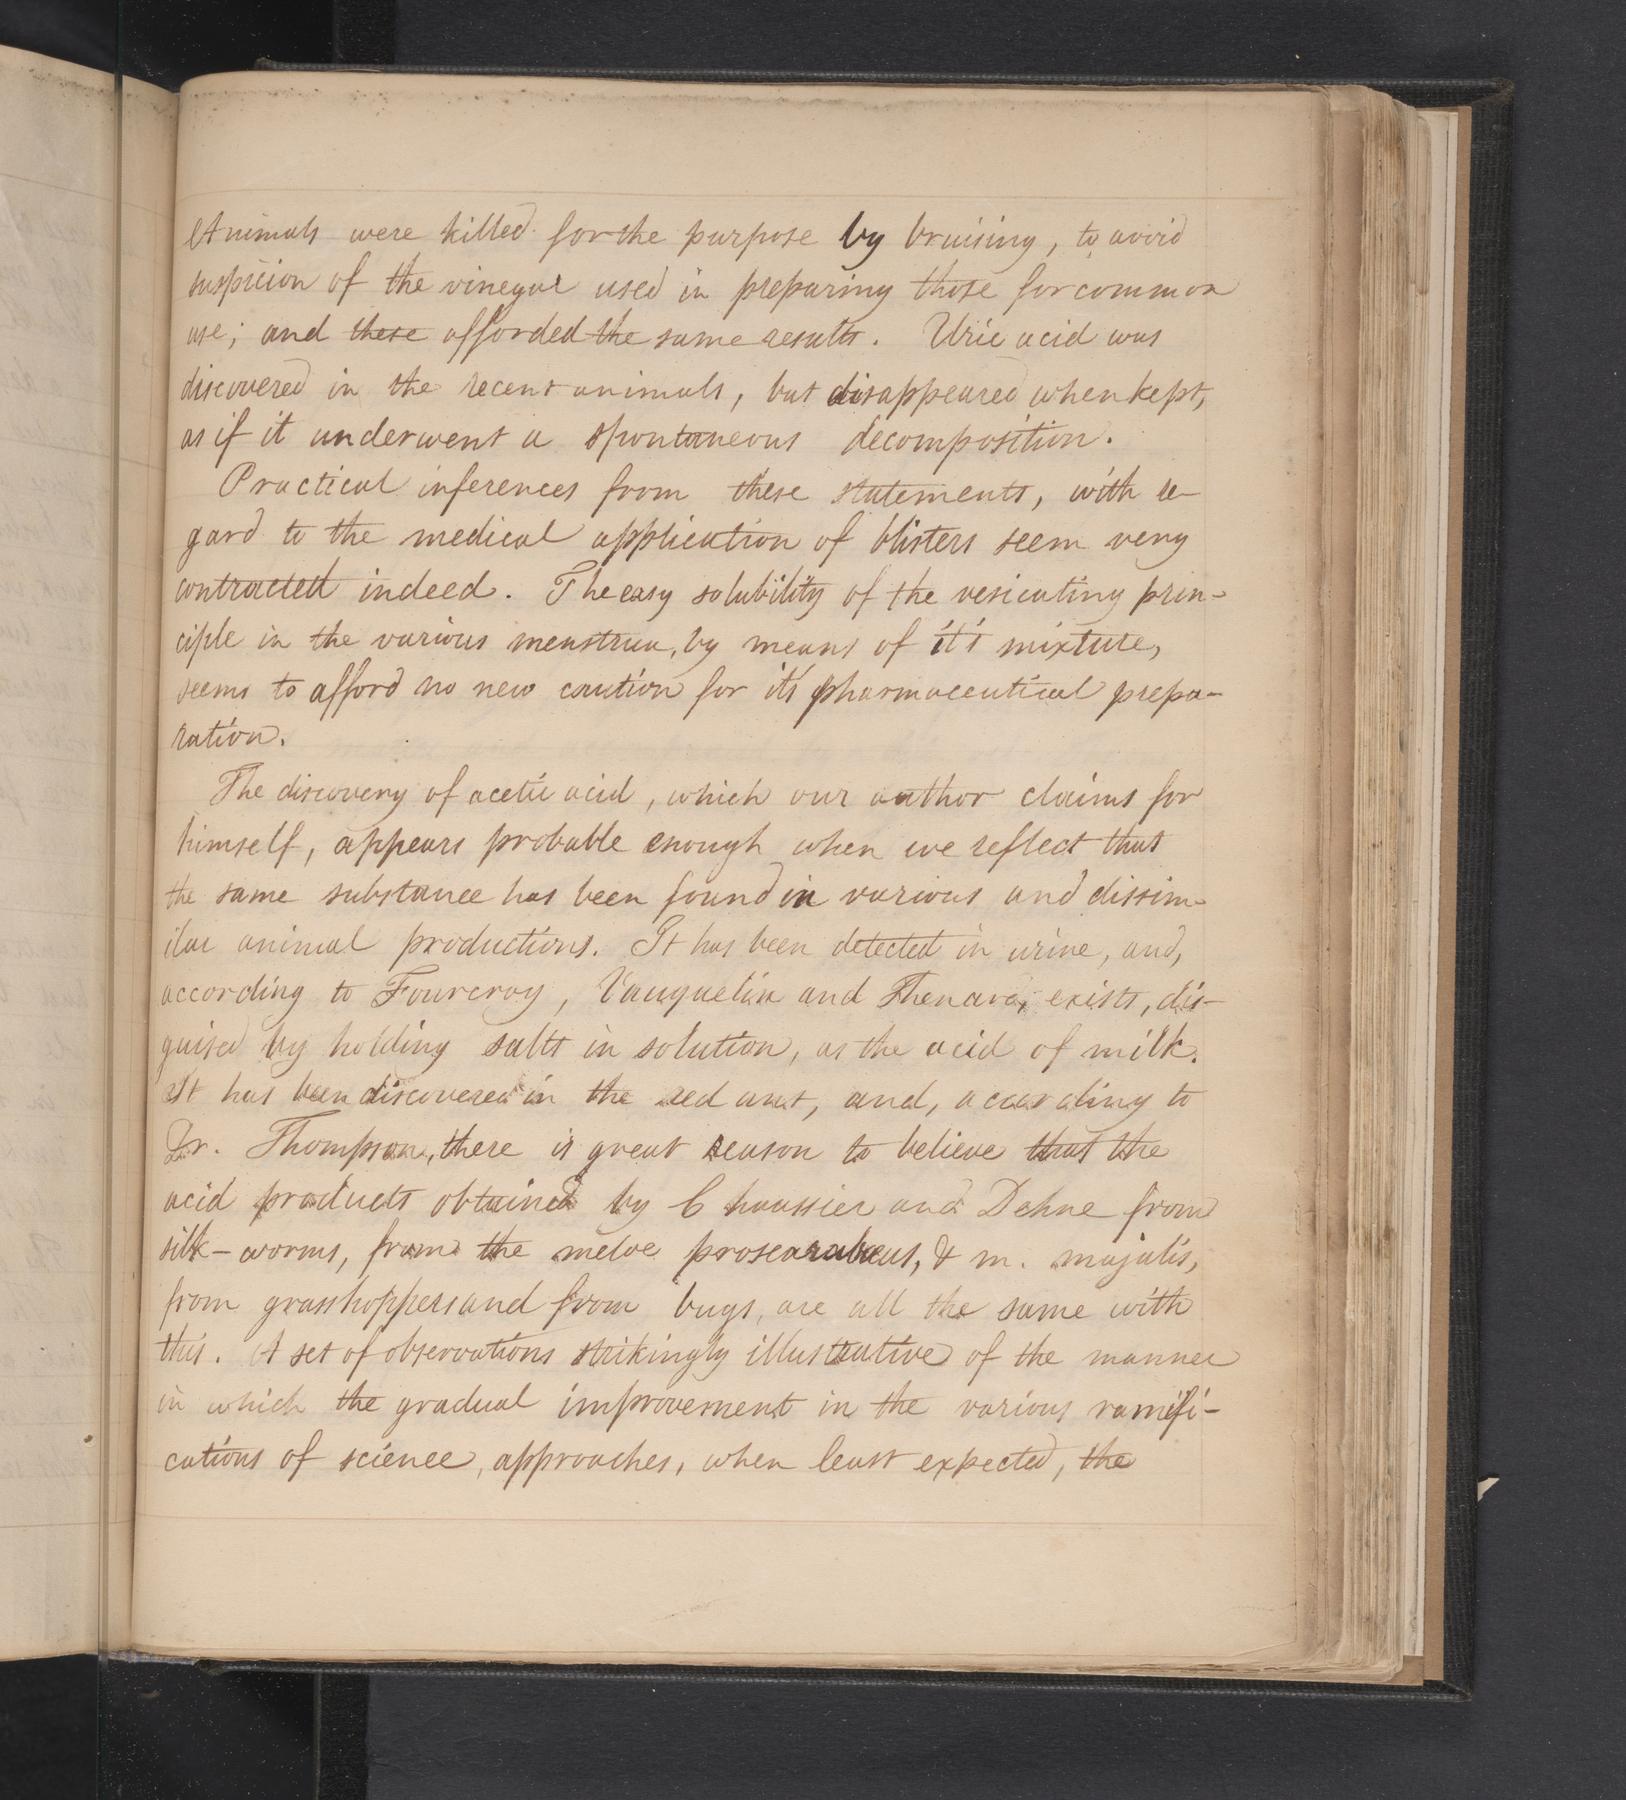 Animals were killed for the purpose by bruising, to avoid
suspicion of the vinegar used in preparing those for common
use; and these afforded the same results. Uric acid was
discovered in the recent animals, but disappeared when kept,
as if it underwent a spontaneous decomposition.
Practical inferences from these statements, with re-
gard to the medical application of blisters seem very
contracted indeed. The easy solubility of the vesicating prin-
ciple in the various menstrua, by means of it's mixture,
seems to afford no new caution for it's pharmaceutical prepa-
ration.
The discovery of acetic acid, which our author claims for
himself, appears probable enough when we reflect that
the same substance has been found in various and dissim-
ilar animal productions. It has been detected in urine, and,
according to Fourcroy, Vauquelin and Thenard, exists, dis-
guised by holding salts in solution, as the acid of milk.
It has been discovered in the red ant, and, according to
Dr. Thompson, there is great reason to believe that the
acid products obtained by Chaussier and Dehne from
silk-worms, from the meloe proscarabeus, & m. majalis,
from grasshoppers and from bugs, are all the same with
this. A set of observations strikingly illustrative of the manner
in which the gradual improvement in the various ramifi-
cations of science, approaches, when least expected, the